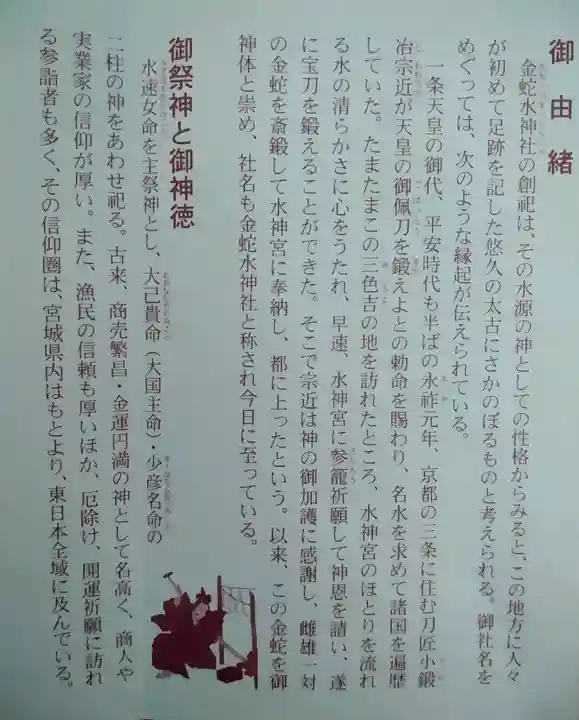 御由緒
金蛇水神社の創祀は、その水源の神としての性格からみると、この地方に人々
が初めて足跡を記した悠久の太古にさかのぼるものと考えられる。御社名を
めぐっては、次のような縁起が伝えられている。
一条天皇の御代、平安時代も半ばの永祚元年、京都の三条に住む刀匠小鍛
冶宗近が天皇の御佩刀を鍛えよとの勅命を賜わり、名水を求めて諸国を遍歴
していた。たまたまこの三色吉の地を訪れたところ、水神宮のほとりを流れ
る水の清らかさに心をうたれ、早速、水神宮に参籠祈願して神恩を請い、遂
に宝刀を鍛えることができた。そこで宗近は神の御加護に感謝し、雌雄一対
の金蛇を斎鍛して水神宮に奉納し、都に上ったという。以来、この金蛇を御
神体と崇め、社名も金蛇水神社と称され今日に至っている。
御祭神と御神徳
水速女命を主祭神とし、大己貴命(大国主命)・少彦名命の
二柱の神をあわせ祀る。古来、商売繁昌・金運円満の神として名高く、商人や
実業家の信仰が厚い。また、漁民の信頼も厚いほか、厄除け、開運祈願に訪れ
る参詣者も多く、その信仰圏は、宮城県内はもとより、東日本全域に及んでいる。